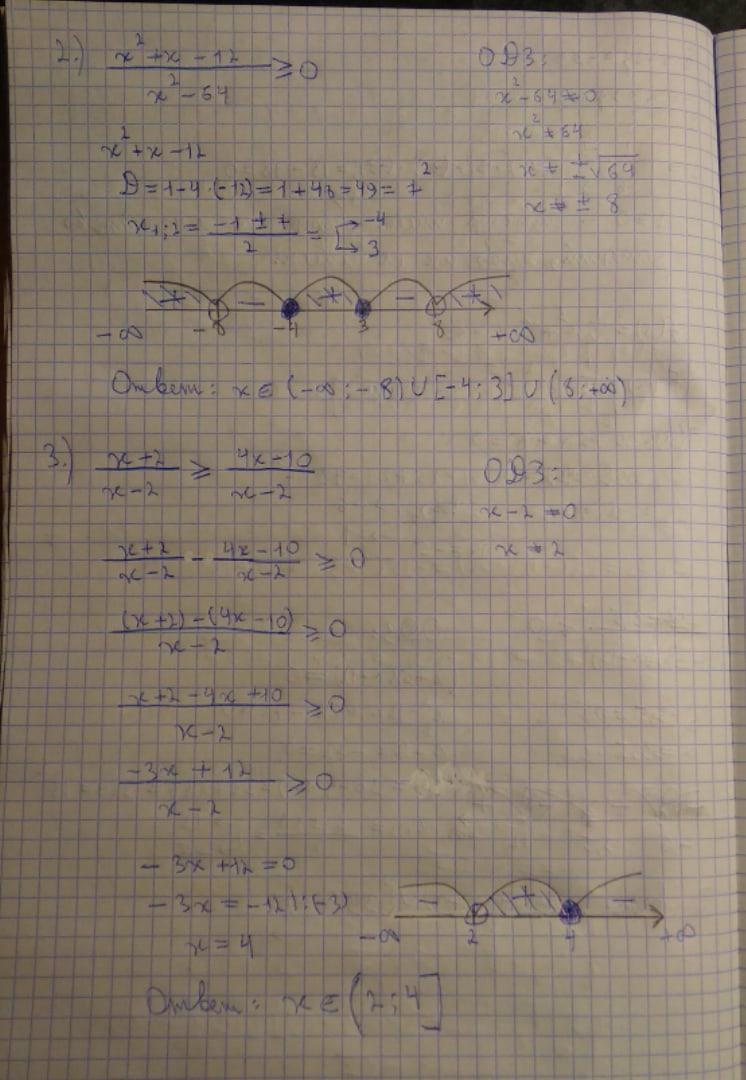 2.) (x² + x - 12)/(x² - 64) ≥ 0
ОДЗ:
x² - 64 ≠ 0
x² ≠ 64
x ≠ ±√64
x ≠ ± 8
x² + x - 12
D = 1 - 4 · (-12) = 1 + 48 = 49 = 7²
x₁;₂ = (-1 ± 7)/2 = [→ -4 → 3
+ - + - +
-∞ -8 -4 3 8 +∞
Ответ: x ∈ (-∞; -8) ∪ [-4; 3] ∪ (8; +∞)
3.) (x+2)/(x-2) ≥ (4x-10)/(x-2)
ОДЗ:
x - 2 ≠ 0
x ≠ 2
(x+2)/(x-2) - (4x-10)/(x-2) ≥ 0
((x+2) - (4x-10))/(x-2) ≥ 0
(x+2-4x+10)/(x-2) ≥ 0
(-3x+12)/(x-2) ≥ 0
- 3x + 12 = 0
- 3x = -12 |:(-3)
x = 4
- + -
-∞ 2 4 +∞
Ответ: x ∈ (2; 4]